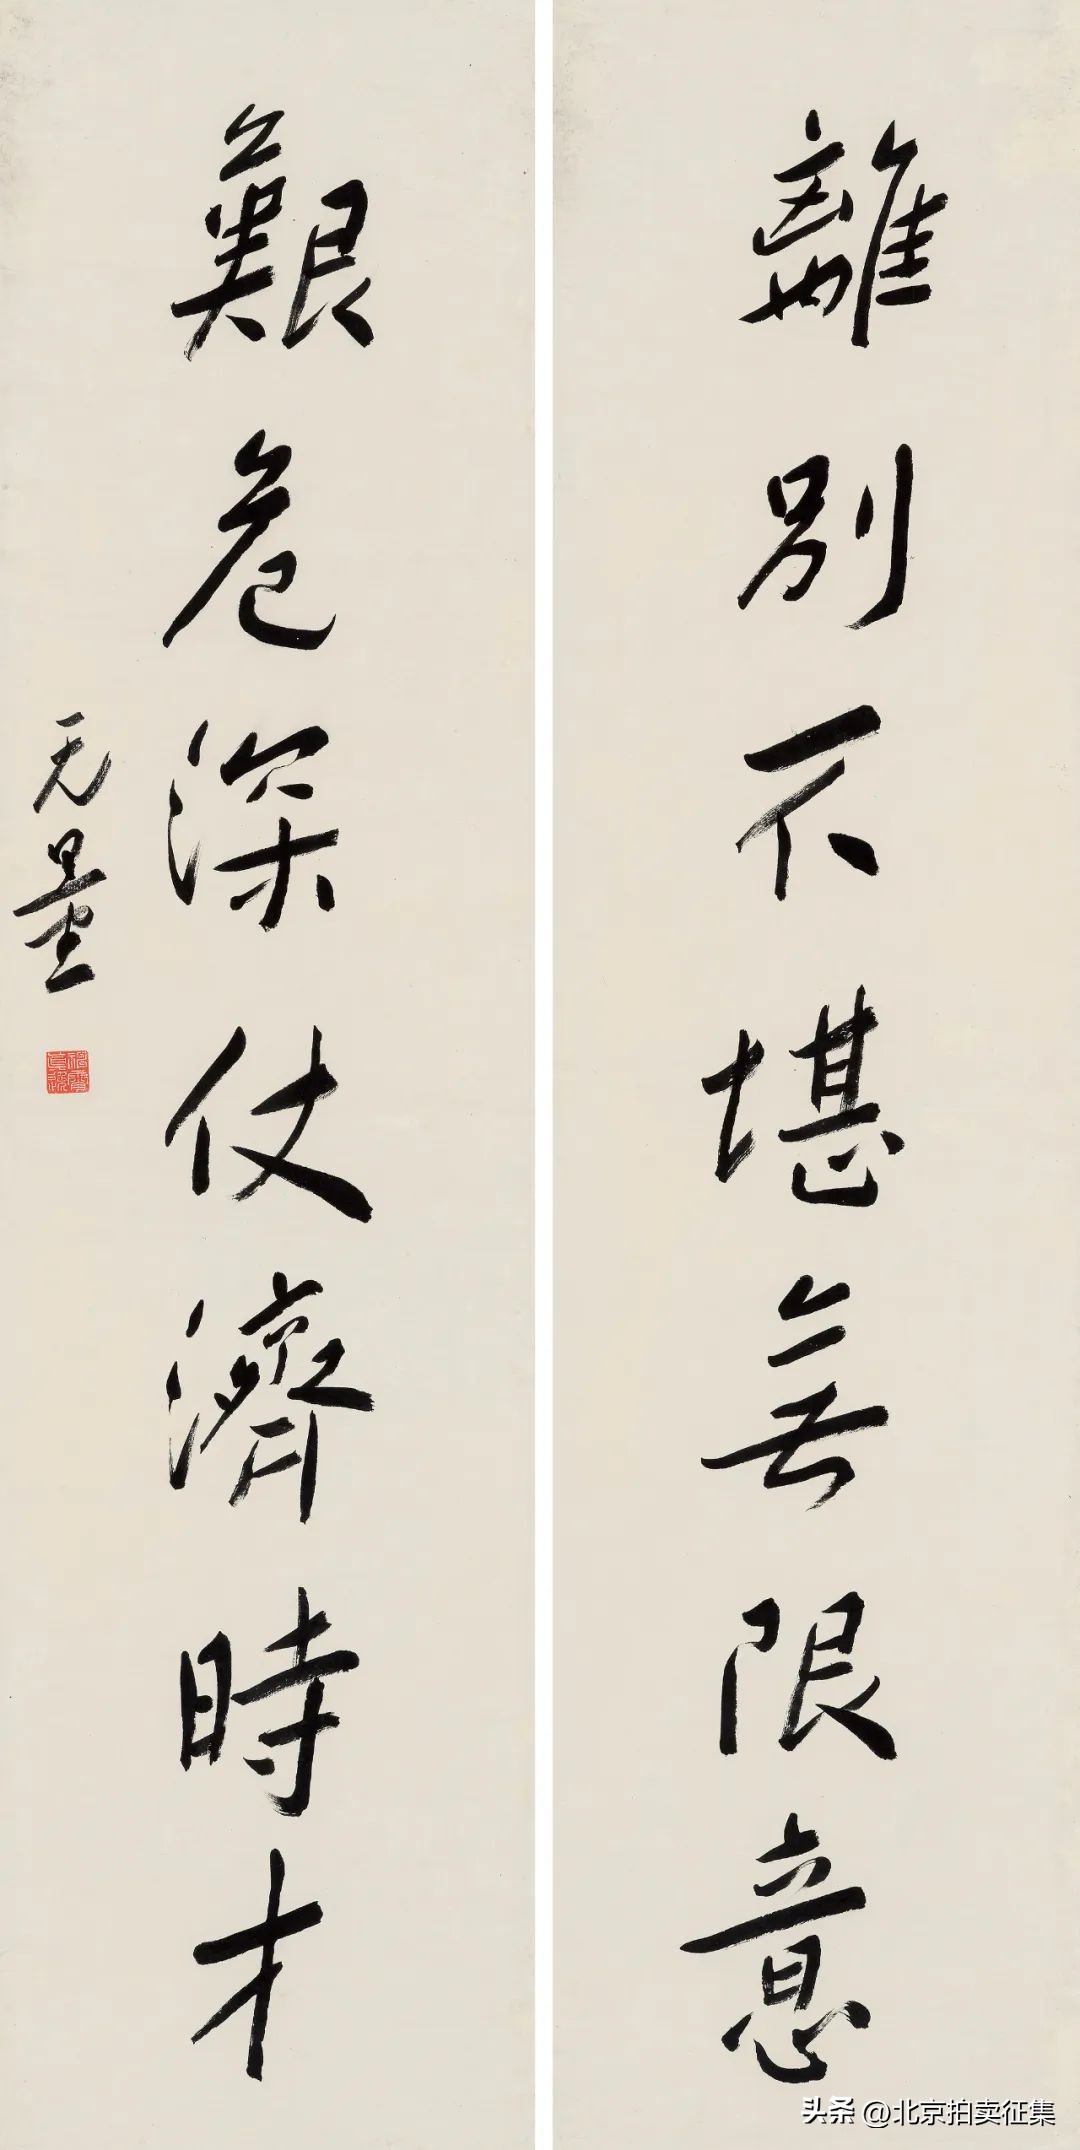 離別不堪無限意
艱危深仗濟時才
无量
头条 @北京拍卖征集